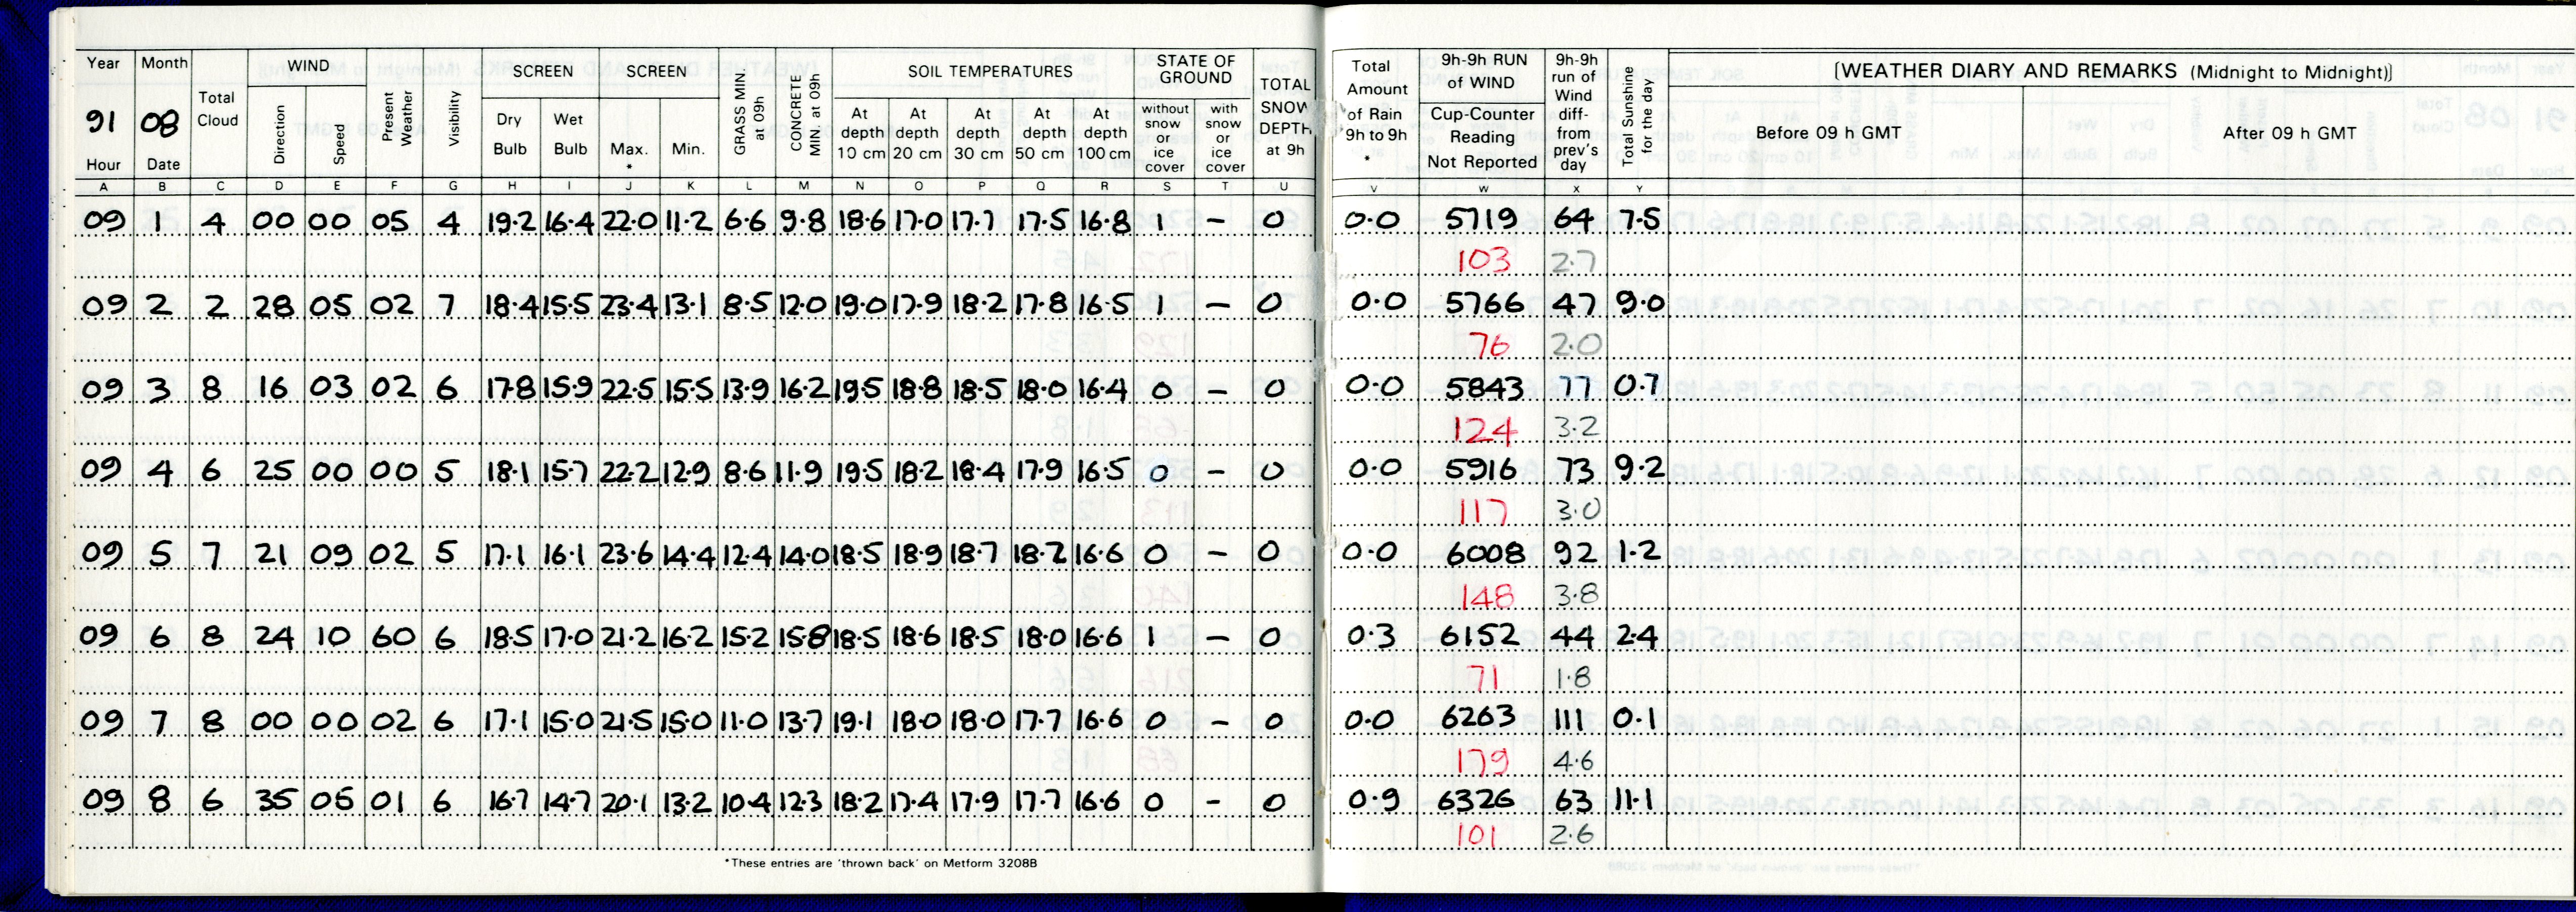 Year Month WIND SCREEN SCREEN SOIL TEMPERATURES STATE OF GROUND
91 08 Total Cloud Direction Speed Present Weather Visibility Dry Bulb Wet Bulb Max. * Min. GRASS MIN. at 09h CONCRETE MIN at 09h At depth 10 cm At depth 20 cm At depth 30 cm At depth 50 cm At depth 100 cm without snow or ice cover with snow or ice cover TOTAL SNOW DEPTH at 9h
Hour Date
Total Amount of Rain 9h to 9h * 9h-9h RUN of WIND Cup-Counter Reading Not Reported 9h-9h run of Wind diff- from prev's day Total Sunshine for the day [WEATHER DIARY AND REMARKS (Midnight to Midnight)]
Before 09 h GMT After 09 h GMT
A B C D E F G H I J K L M N O P Q R S T U V W X Y
09 1 4 00 00 05 4 19.2 16.4 22.0 11.2 6.6 9.8 18.6 17.0 17.7 17.5 16.8 1 – 0 0.0 5719 64 7.5
103 2.7
09 2 2 28 05 02 7 18.4 15.5 23.4 13.1 8.5 12.0 19.0 17.9 18.2 17.8 16.5 1 – 0 0.0 5766 47 9.0
76 2.0
09 3 8 16 03 02 6 17.8 15.9 22.5 15.5 13.9 16.2 19.5 18.8 18.5 18.0 16.4 0 – 0 0.0 5843 77 0.7
124 3.2
09 4 6 25 00 00 5 18.1 15.7 22.2 12.9 8.6 11.9 19.5 18.2 18.4 17.9 16.5 0 – 0 0.0 5916 73 9.2
117 3.0
09 5 7 21 09 02 5 17.1 16.1 23.6 14.4 12.4 14.0 18.5 18.9 18.7 18.2 16.6 0 – 0 0.0 6008 92 1.2
148 3.8
09 6 8 24 10 60 6 18.5 17.0 21.2 16.2 15.2 15.8 18.5 18.6 18.5 18.0 16.6 1 – 0 0.3 6152 44 2.4
71 1.8
09 7 8 00 00 02 6 17.1 15.0 21.5 15.0 11.0 13.7 19.1 18.0 18.0 17.7 16.6 0 – 0 0.0 6263 111 0.1
179 4.6
09 8 6 35 05 01 6 16.7 14.7 20.1 13.2 10.4 12.3 18.2 17.4 17.9 17.7 16.6 0 – 0 0.9 6326 63 11.1
101 2.6
*These entries are 'thrown back' on Metform 3208B